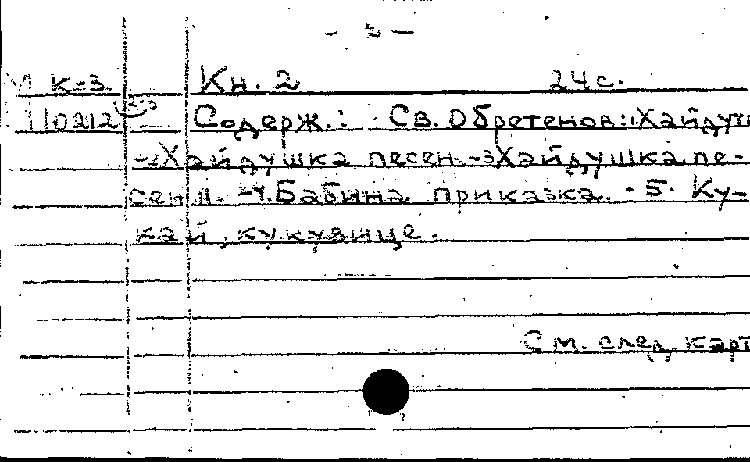 - 3 -
К-3 Кн. 2 24 с.
110212 Содерж.: Св. Обретенов: 1. Хайдуш
- 2. Хайдушка песен. - 3. Хайдушка пе-
сен II. - 4. Бабина приказка. - 5. Ку-
кай, кукувице.
См. след. карт